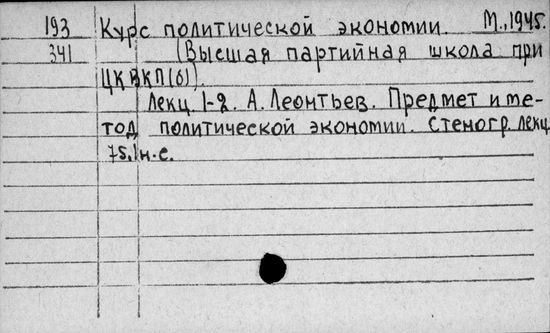 193 Курс политической экономии. М., 1945.
341 (Высшая партийная школа при
ЦК ВКП(б)
Лекц. 1-2. А. Леонтьев. Предмет и ме-
тод политической экономии. Стеногр. лекц.
75. н.с.